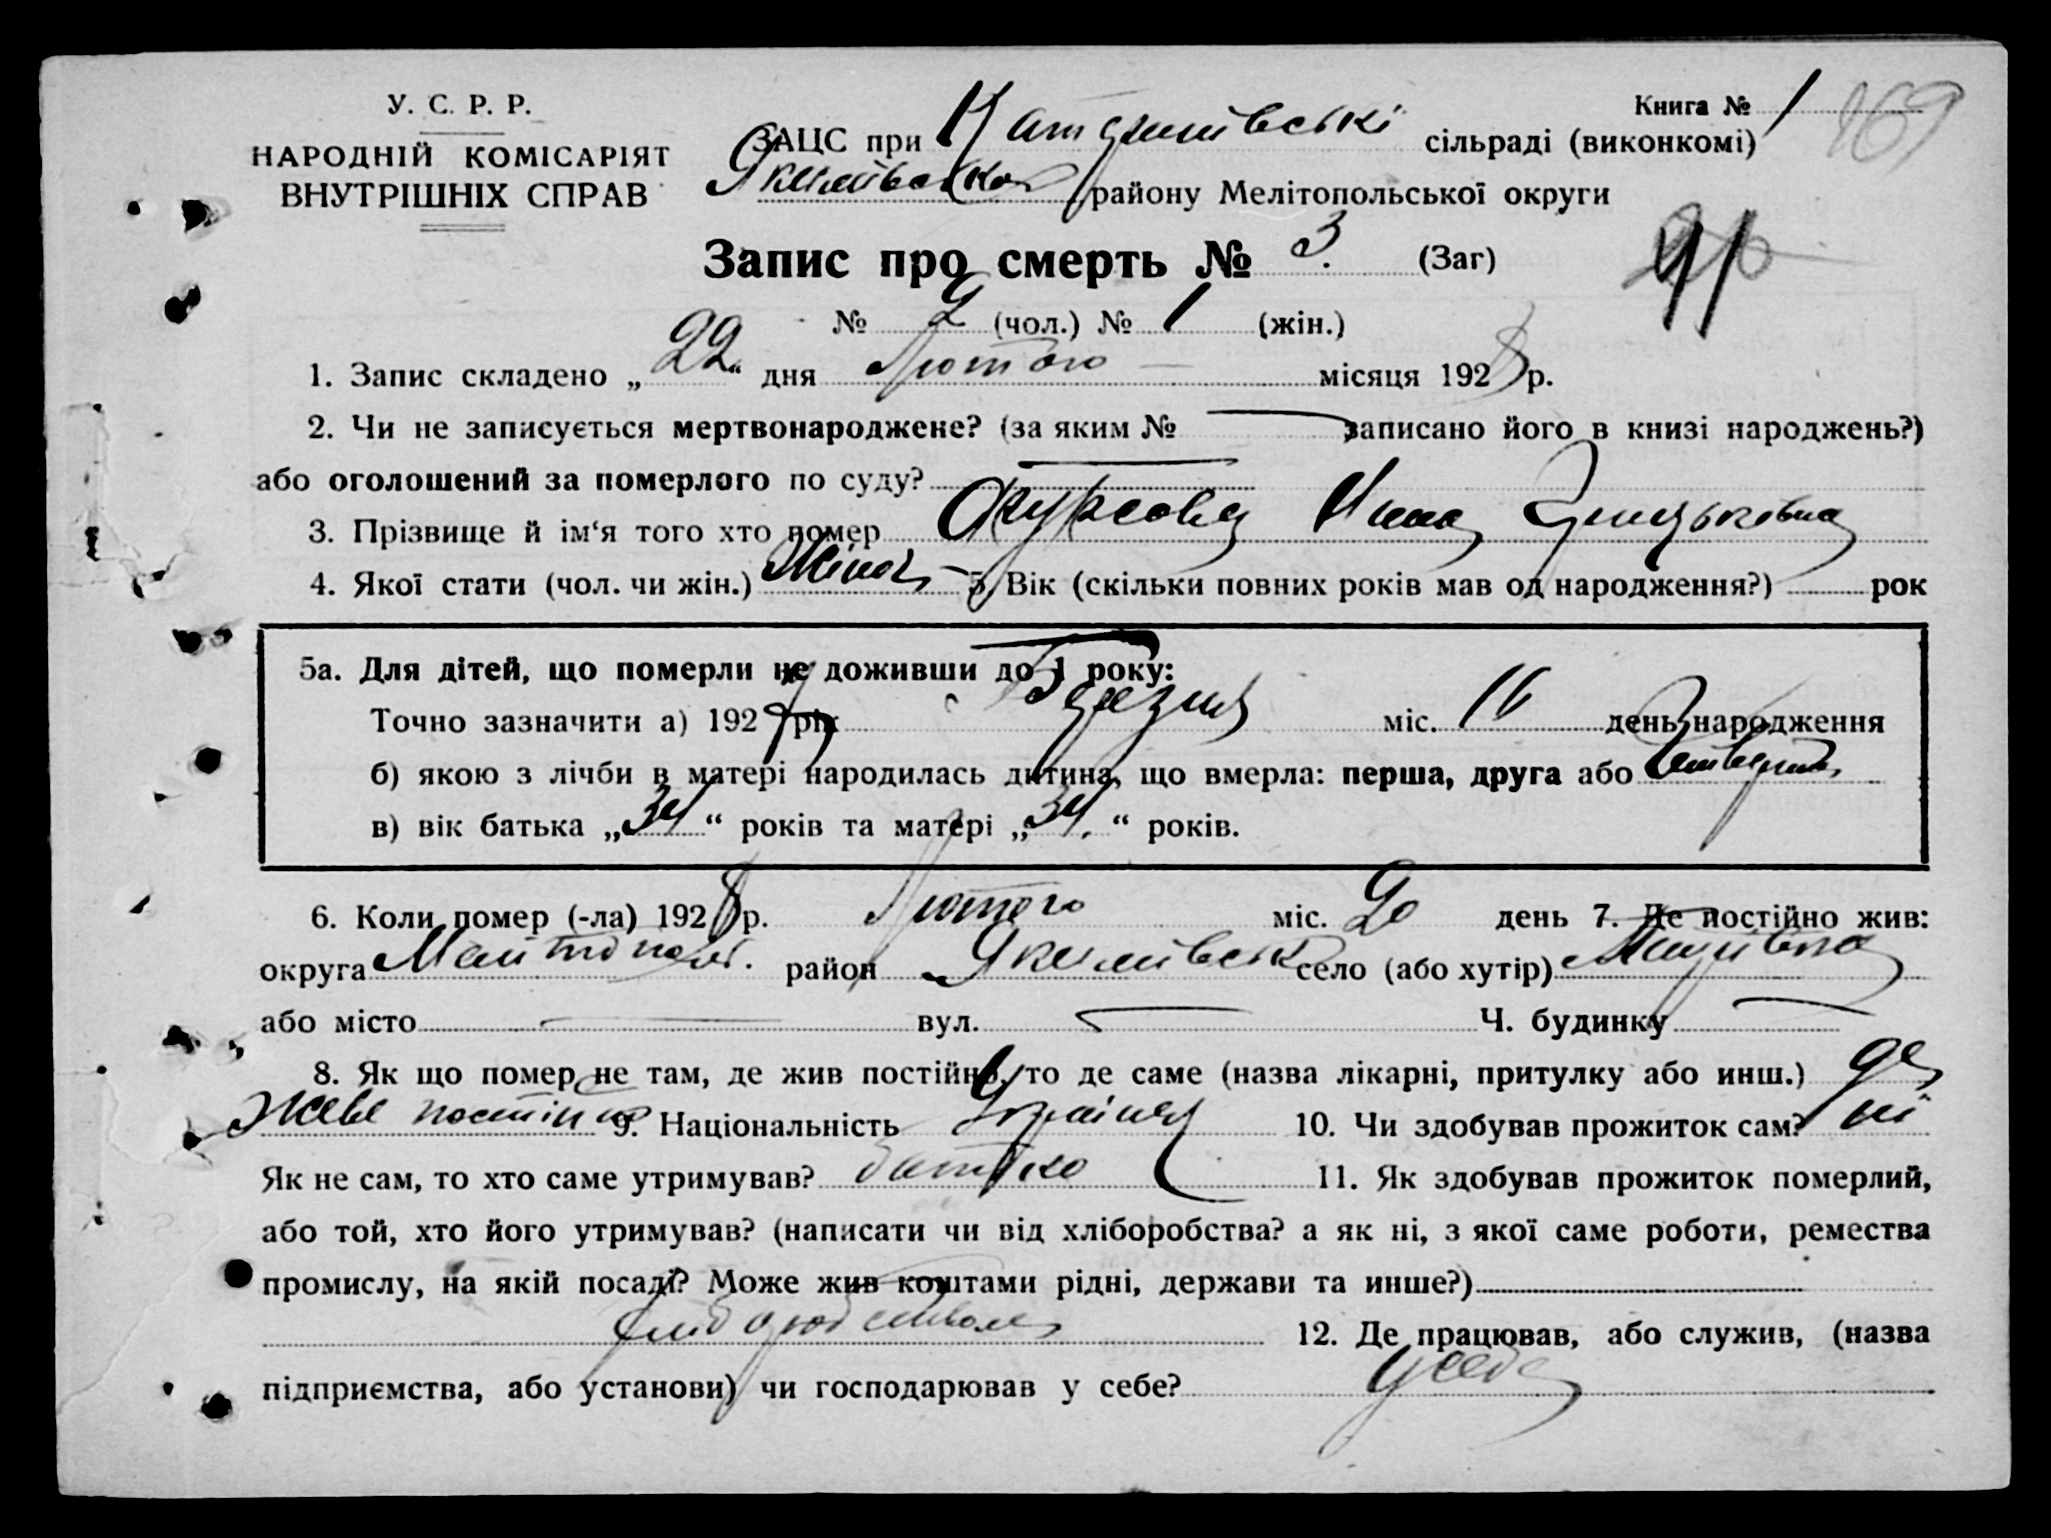 У. С. Р. Р.
НАРОДНІЙ КОМІСАРІЯТ
ВНУТРІШНІХ СПРАВ
Книга № 1 169
ЗАЦС при сільраді (виконкомі)
району Мелітопольської округи
Запис про смерть № 3. (Заг)
№ 2 (чол.) № 1 (жін.)
1. Запис складено „22“ дня Лютого місяця 1928 р.
2. Чи не записується мертвонароджене? (за яким № записано його в книзі народжень?)
або оголошений за померлого по суду?
3. Прізвище й ім‘я того хто помер Фурсова Нина Грицьковна
4. Якої стати (чол. чи жін.) Жіноч 5. Вік (скільки повних років мав од народження?) рок
5а. Для дітей, що померли не доживши до 1 року:
Точно зазначити а) 1927 рік Березня міс. 16 день народження
б) якою з лічби в матері народилась дитина, що вмерла: перша, друга або Четверта
в) вік батька „34“ років та матері „34.“ років.
6. Коли помер (-ла) 1928 р. Лютого міс. 20 день 7. Де постійно жив:
округа Мелітополь. район Якимівськ село (або хутір)
або місто вул. Ч. будинку
8. Як що помер не там, де жив постійно, то де саме (назва лікарні, притулку або инш.) де
живе постійно 9. Національність 10. Чи здобував прожиток сам? ні
Як не сам, то хто саме утримував? батько 11. Як здобував прожиток померлий,
або той, хто його утримував? (написати чи від хліборобства? а як ні, з якої саме роботи, ремества
промислу, на якій посаді? Може жив коштами рідні, держави та инше?)
хліборобством 12. Де працював, або служив, (назва
підприємства, або установи) чи господарював у себе? у себе